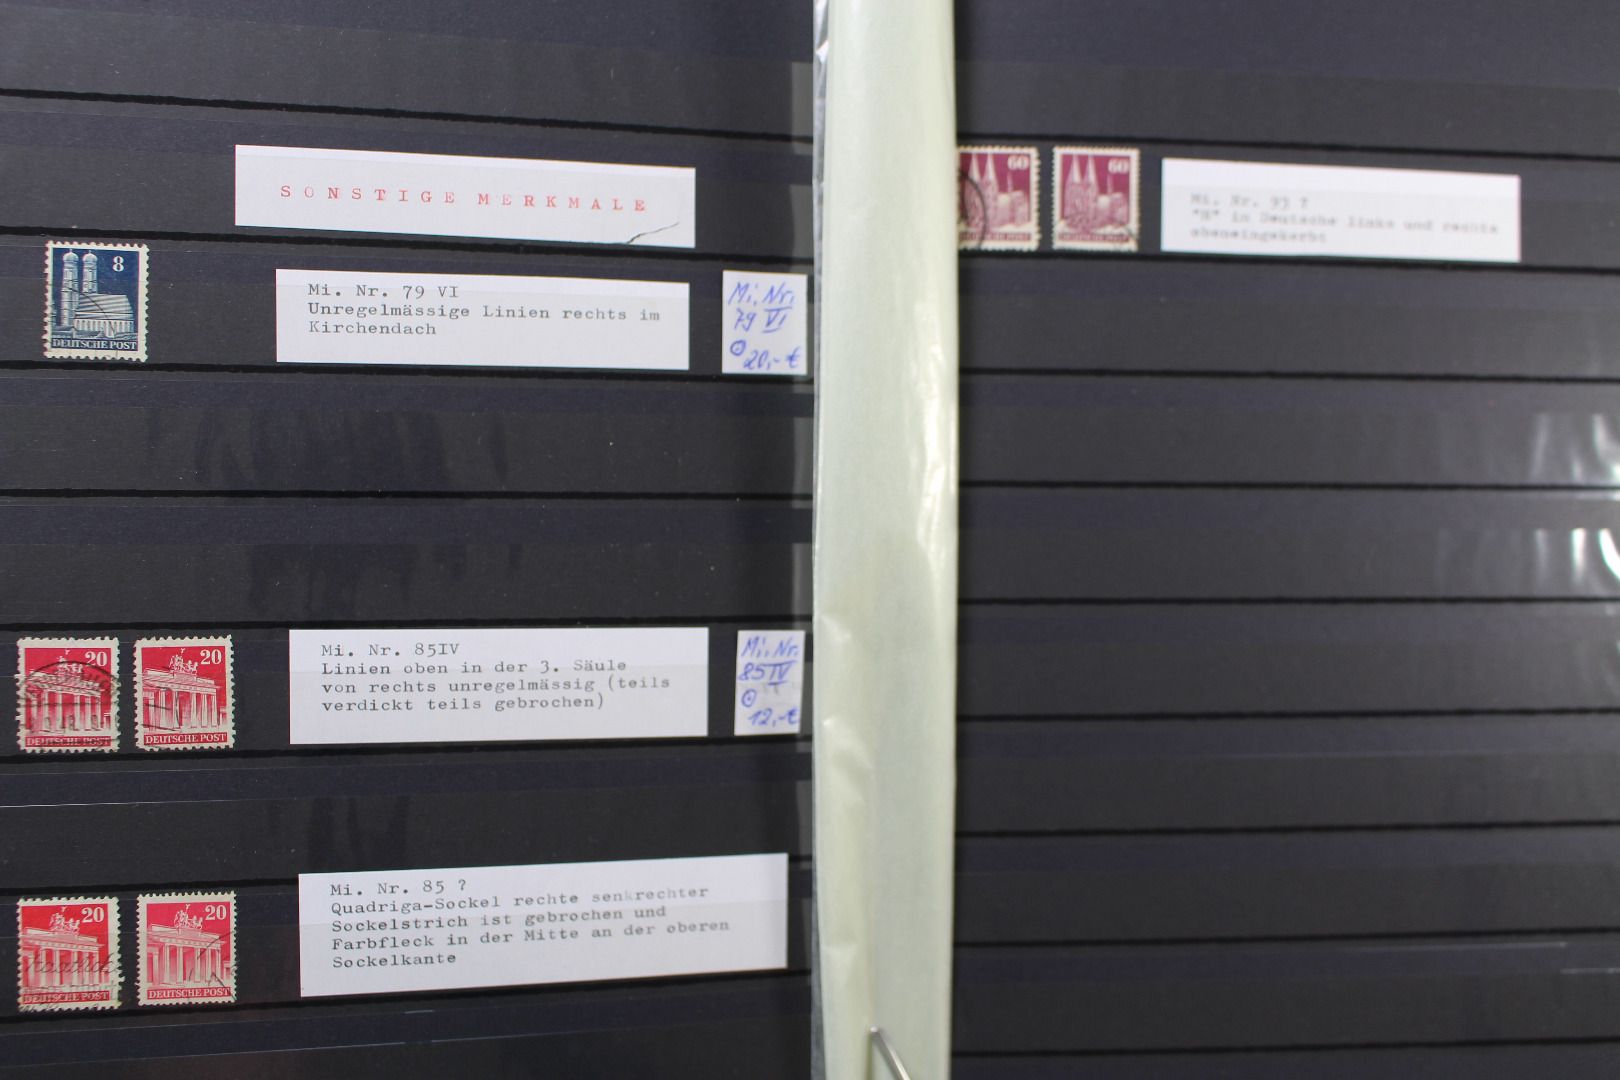 SONSTIGE MERKMALE
8
DEUTSCHE POST
Mi. Nr. 79 VI
Unregelmässige Linien rechts im
Kirchendach
Mi. Nr.
79 VI
20,- €
20
DEUTSCHE POST
20
DEUTSCHE POST
Mi. Nr. 85IV
Linien oben in der 3. Säule
von rechts unregelmässig (teils
verdickt teils gebrochen)
Mi. Nr.
85 IV
12,- €
20
DEUTSCHE POST
20
DEUTSCHE POST
Mi. Nr. 85 ?
Quadriga-Sockel rechte senkrechter
Sockelstrich ist gebrochen und
Farbfleck in der Mitte an der oberen
Sockelkante
60
DEUTSCHE POST
60
DEUTSCHE POST
Mi. Nr. 93 ?
"H" in Deutsche links und rechts